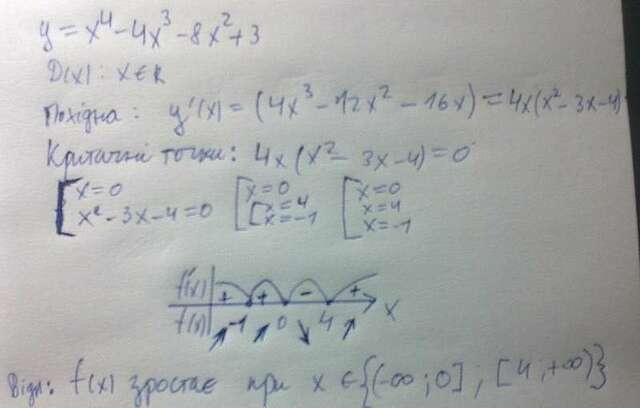 y = x⁴ - 4x³ - 8x² + 3
D(x): x ∈ R
Похідна: y'(x) = (4x³ - 12x² - 16x) = 4x(x² - 3x - 4)
Критичні точки: 4x(x² - 3x - 4) = 0
[ x = 0 [ x = 0 [ x = 0
x² - 3x - 4 = 0 [ x = 4 x = 4
x = -1 x = -1
f'(x) + + - +
f(x) ↗ -1 ↗ 0 ↘ 4 ↗ x
Відп.: f(x) зростає при x ∈ {(-∞; 0]; [4; +∞)}